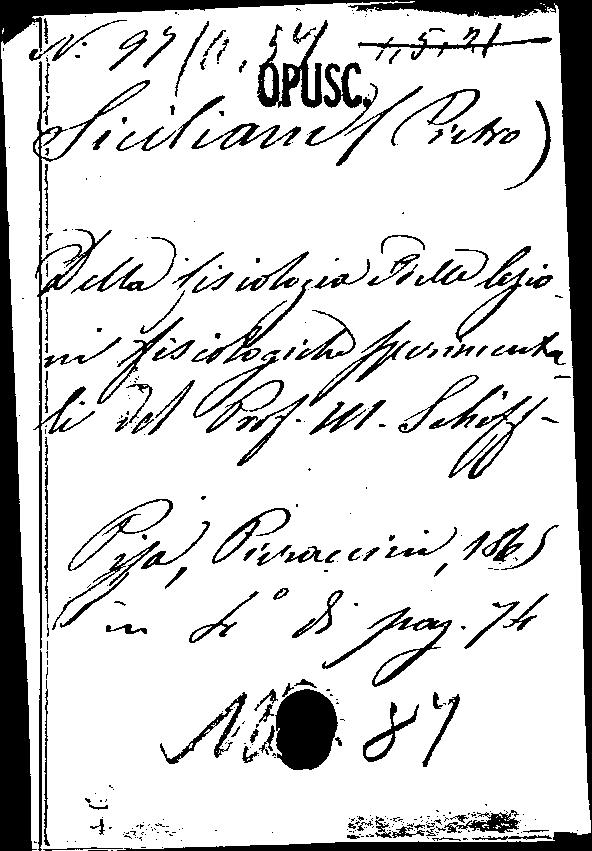 N. 97/A, 54 1,5,21
OPUSC.
Siciliani (Pietro)
Della fisiologia e delle lezio-
ni fisiologiche sperimenta-
li del Prof. M. Schiff-
Pisa, Pieraccini, 1865
in 4° di pag. 74
87